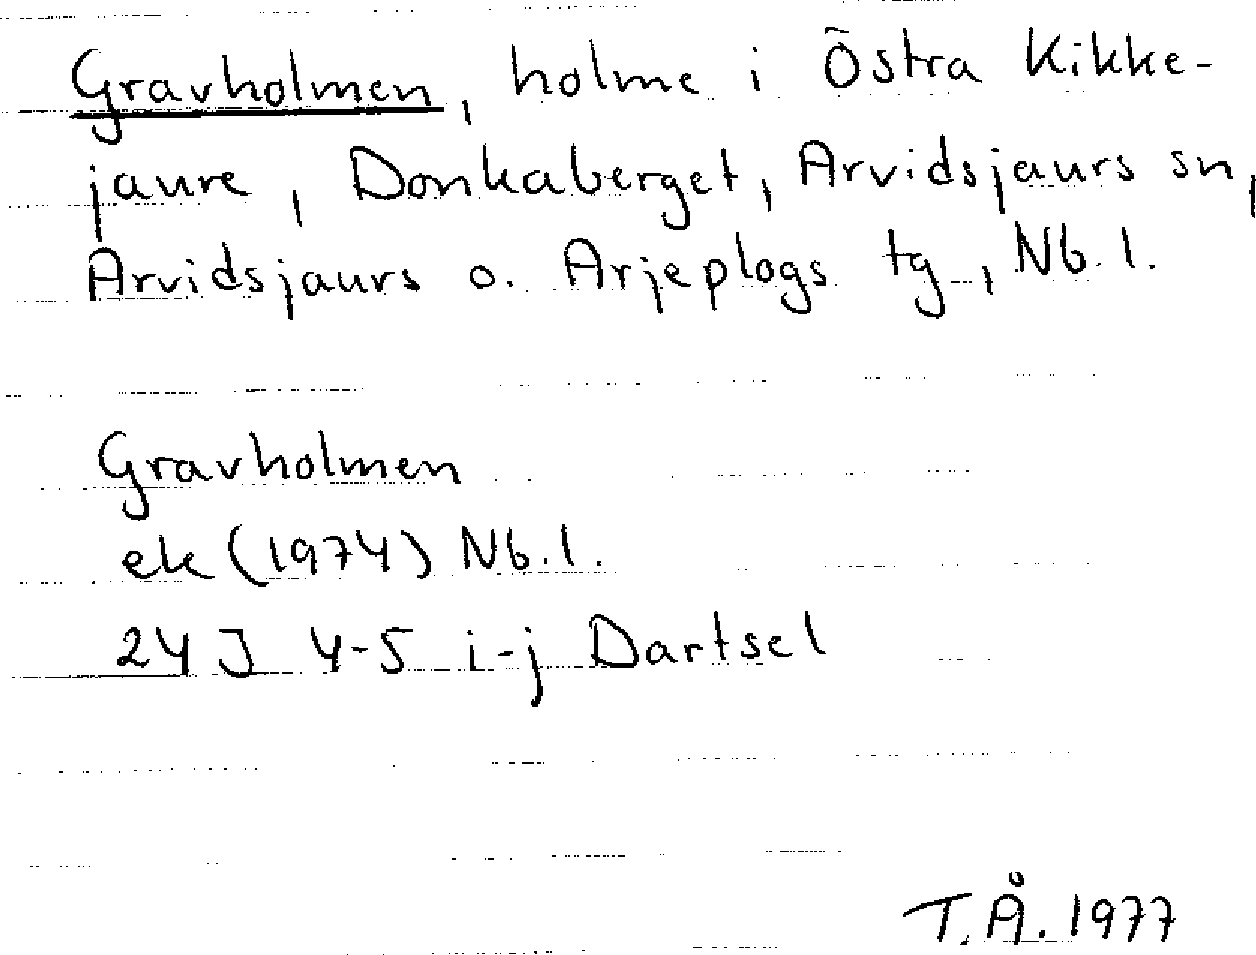 Gravholmen, holme i Östra Kikke-
jaure, Donkaberget, Arvidsjaurs sn,
Arvidsjaurs o. Arjeplogs tg, Nb. l.
Gravholmen
ek (1974) Nb. l.
24 J 4-5 i-j Dartsel
T.Å. 1977